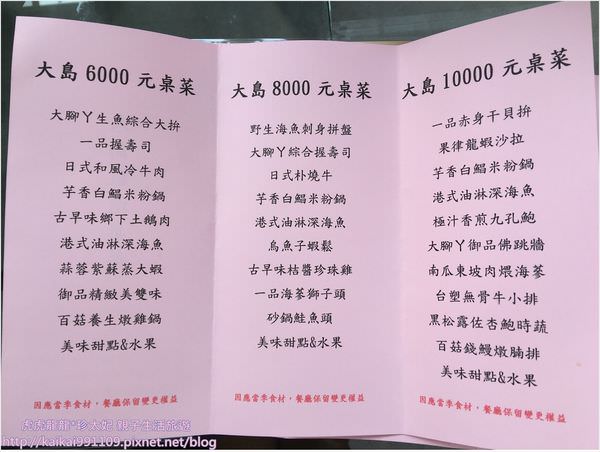 大島 6000 元桌菜
大腳丫生魚綜合大拚
一品握壽司
日式和風冷牛肉
芋香白鯧米粉鍋
古早味鄉下土鵝肉
港式油淋深海魚
蒜蓉紫蘇蒸大蝦
御品精緻美雙味
百菇養生燉雞鍋
美味甜點&水果
因應當季食材，餐廳保留變更權益
大島 8000 元桌菜
野生海魚刺身拼盤
大腳丫綜合握壽司
日式朴燒牛
芋香白鯧米粉鍋
港式油淋深海魚
烏魚子蝦鬆
古早味桔醬珍珠雞
一品海蔘獅子頭
砂鍋鮭魚頭
美味甜點&水果
因應當季食材，餐廳保留變更權益
大島 10000 元桌菜
一品赤身干貝拚
果律龍蝦沙拉
芋香白鯧米粉鍋
港式油淋深海魚
極汁香煎九孔鮑
大腳丫御品佛跳牆
南瓜東坡肉煨海蔘
台塑無骨牛小排
黑松露佐杏鮑時蔬
百菇錢鰻燉腩排
美味甜點&水果
因應當季食材，餐廳保留變更權益
虎虎龍龍*珍太妃 親子生活旅遊
http://kaikai991109.pixnet.net/blog